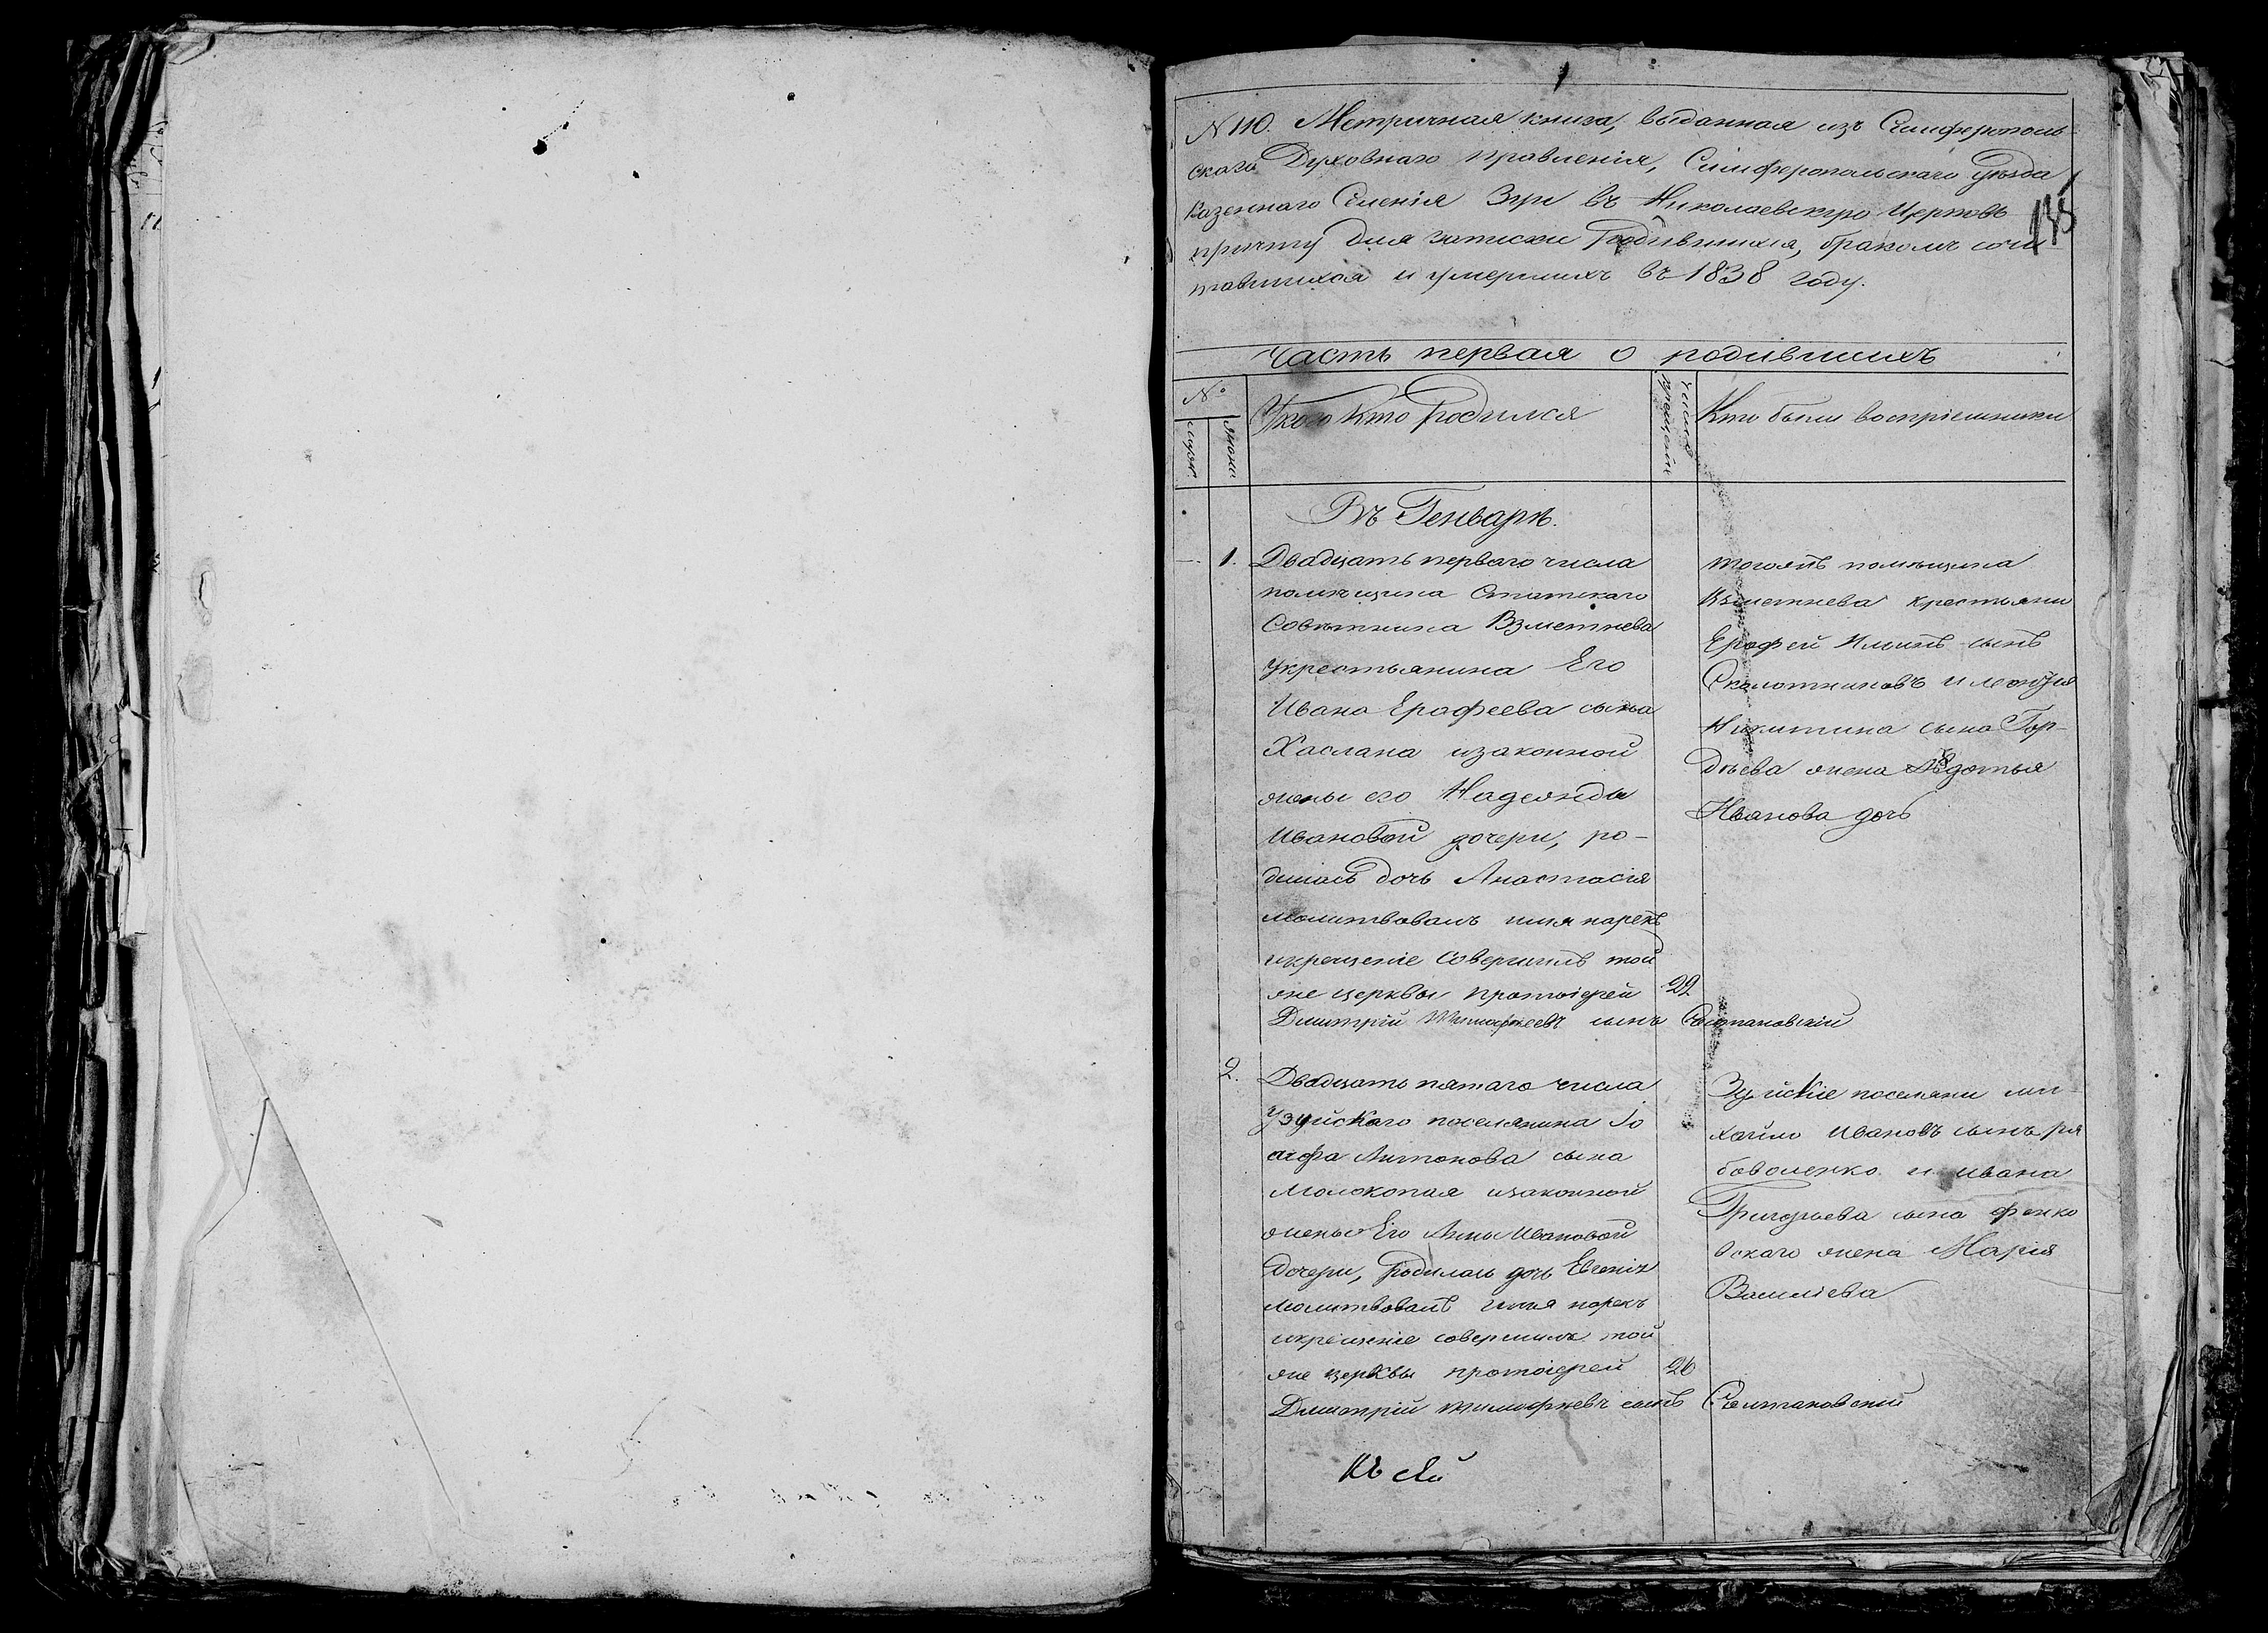 N 110. Метричная книга, выданная изъ Симферополь-
скаго Духовнаго правленія, Симферопольскаго уѣзда
казеннаго Селенія Зуи въ Николаевскую Церковь
причту для записки Родившихся, бракомъ соче-
тавшихся и умершихъ въ 1838 году.
Часть первая о родившихъ
№
муж.
женск
У кого кто Родился
число крещенія
Кто были воспріемники
Въ Генварѣ.
1.
Двадцать перваго числа
помѣщика Статскаго
Совѣтника Взметнева
у крестьянина Его
Ивана Ерафеева сына
Хаслана и законной
жены его Надежды
Ивановой дочери, ро-
дилась дочь Анастасія
молитвовалъ имя нарекъ
и крещеніе Совершилъ той
же церквы протоіерей
22
Дмитрій Тимофѣевъ сынъ
тогожъ помѣщика
Взметнева крестьяни
Ерофей сынъ
и
Никитина сына Гор-
дѣева жена Авдотья
Иванова дочь
2.
Двадцать пятаго числа
У зуйскаго поселянина Іо
асфа Антонова сына
Молокопая и законной
жены Его Анны Ивановой
дочери, родилась дочь Евгенія
молитвовалъ имя нарекъ
и крещеніе совершилъ той
же церквы протоіерей
26
Дмитрій Тимофѣевъ сынъ
Зуйскіе поселяни ми-
хайло Ивановъ сынъ ря
боволенко и ивана
Григорьева сына фенко
вскаго жена Марія
Васильева
Къ сей